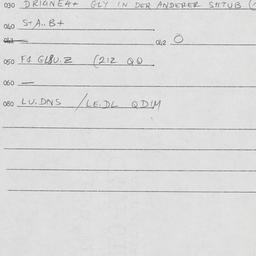 030 DRIGNE4+ GLY IN DER ANDERER SHTUB (
040 ST A.. B+
041 — 042 O
050 F1 GL8U.Z (212 QO
060 —
080 LU.DNS / LE.DL QD1M